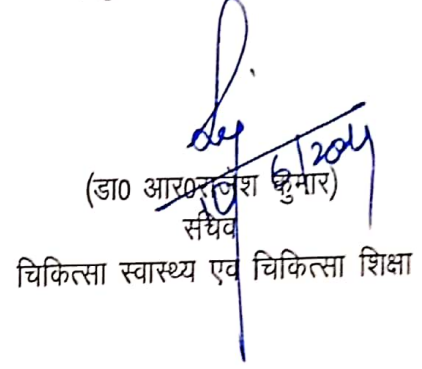 (डा० आर०राजेश कुमार)
सचिव
चिकित्सा स्वास्थ्य एवं चिकित्सा शिक्षा